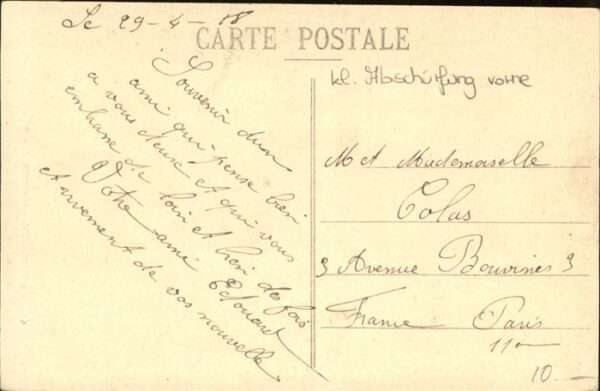 Le 29-4-18
CARTE POSTALE
Souvenir d'un
ami qui pense bien
a vous deux et qui vous
embrasse de loin et bien des fois
Votre ami Edouard
et vivement de vos nouvelle
kl. Abschürfung vorne
M et Mademoiselle
Colas
3 Avenue Bouvines 3
France Paris
11em
10.—